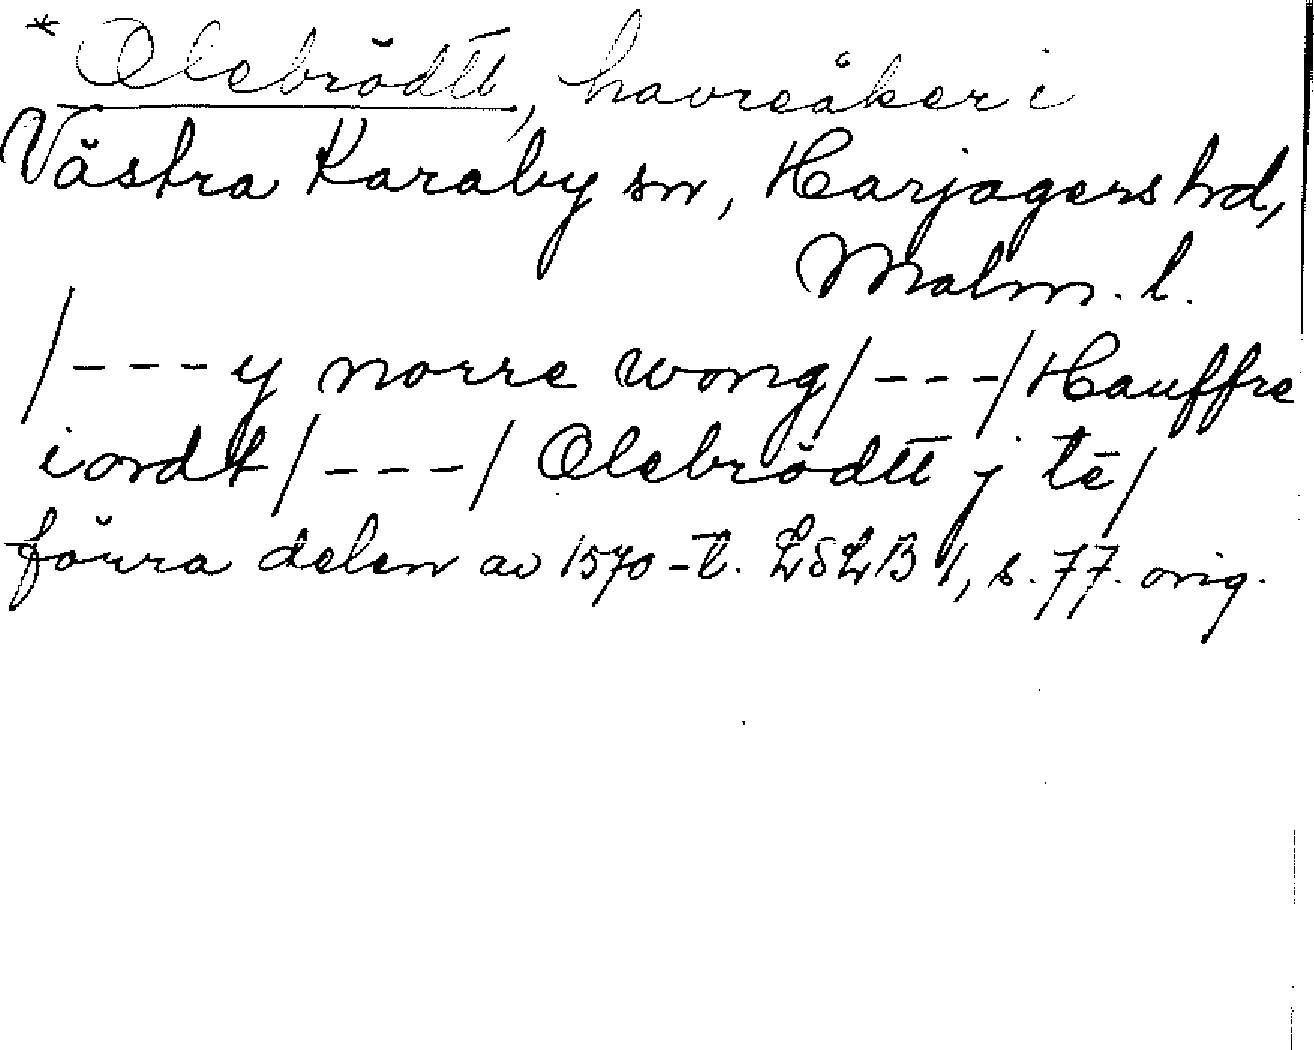 * Olebrödtt, havreåker i
Västra Karaby sn, Harjagers hd,
Malm. l.
/---y norre wong/---/Hauffre
iordt/---/ Olebrödtt j tē/
förra delen av 1570-t. LSLB 1, s. 77. orig.